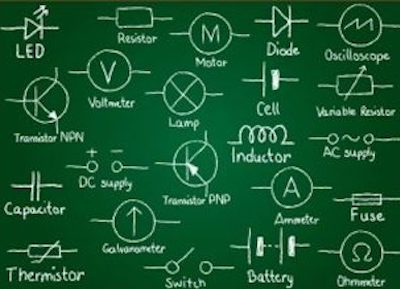 LED
Resistor
M
Motor
Diode
Oscilloscope
V
Voltmeter
Lamp
Cell
Variable Resistor
Transistor NPN
Inductor
AC supply
DC supply
Transistor PNP
Capacitor
A
Ammeter
Fuse
Galvanometer
Thermistor
Switch
Battery
Ω
Ohmmeter